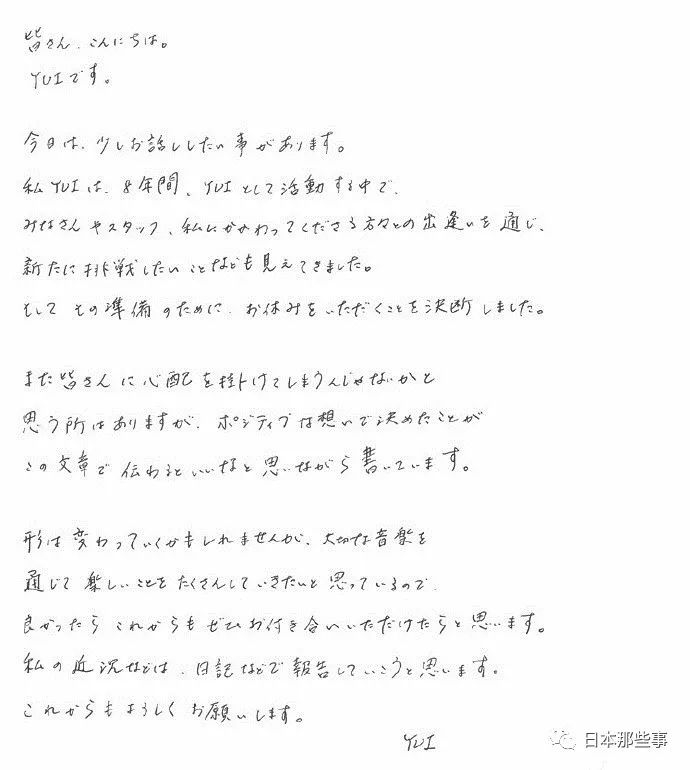 皆さん、こんにちは。
YUIです。
今日は、少しお話ししたい事があります。
私YUIは、8年間、YUIとして活動する中で、
みなさんやスタッフ、私にかかわってくださる方々との出逢いを通じ、
新たに挑戦したいことなども見えてきました。
そして その準備のために、お休みをいただくことを決断しました。
また皆さんに心配を掛けてしまうんじゃないかと
思う所はありますが、ポジティブな想いで決めたことが
この文章で伝わるといいなと思いながら書いています。
形は変わっていくかもしれませんが、大切な音楽を
通じて楽しいことをたくさんしていきたいと思っているので、
良かったら これからもぜひお付き合いいただけたらと思います。
私の近況などは、日記などで報告していこうと思います。
これからもよろしくお願いします。
YUI
日本那些事